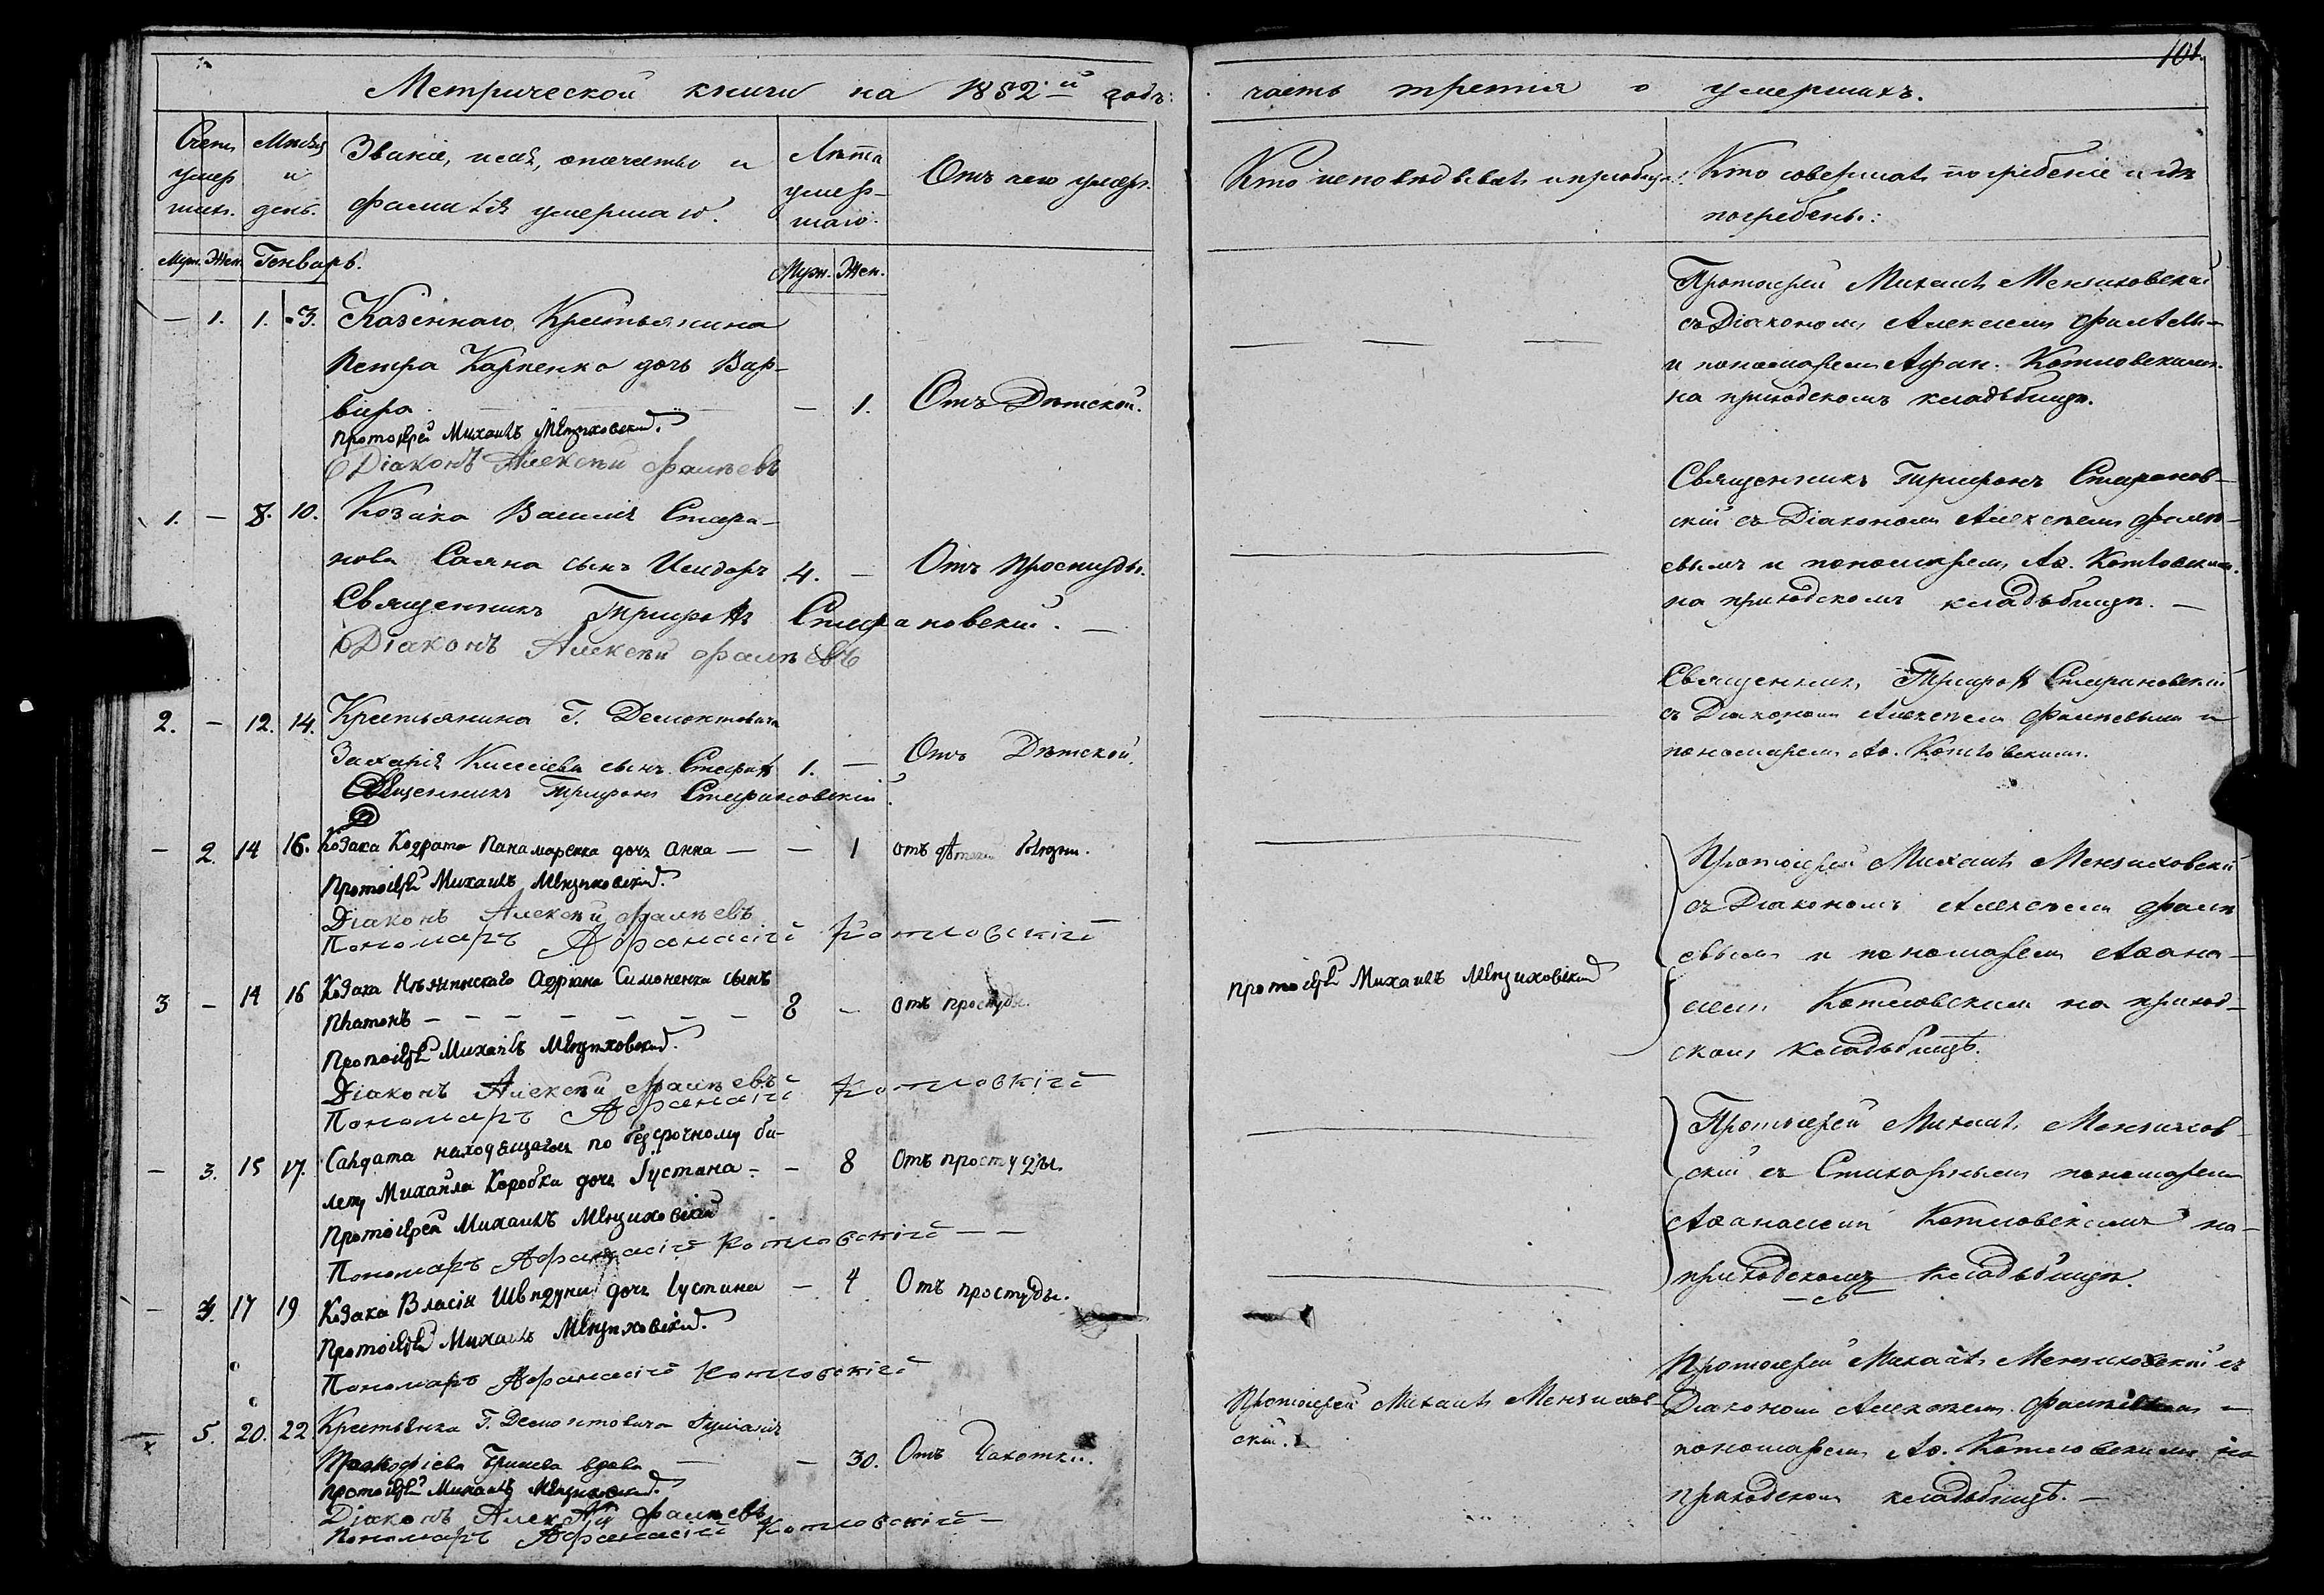 101.
Метрической книги на 1852й годъ:
часть третiя о умершихъ.
Счетъ умер шихъ.
Мѣсяцъ и день.
Званiе, имя, отчество и
фамилiя умершаго.
Лѣта
умер-
шаго.
Отъ чего умеръ.
Кто исповѣдывалъ и прiобщ.:
Кто совершалъ погребенiе и гдѣ
погребены:
Муж. Жен. Генварь.
Муж. Жен.
— 1. 1. 3. Казеннаго Крестьянина
Петра Карпенка дочь Вар-
вара. — 1. Отъ Дѣтской.
Протоiерей Михаилъ Мензиховский.
Дiаконъ Алексѣй Фалѣевъ
Протоiерей Михаилъ Мензиховскiй
съ Дiакономъ Алексеемъ Фалѣем-
и пономаремъ Афан. Котловскимъ.
на приходскомъ кладьбищѣ.
1. — 8. 10. Козака Василiя Стефа-
нова Саяна сынъ Исидоръ 4. — Отъ Простуды.
Священникъ Трифонъ Стефановскiй. —
Дiаконъ Алексѣй Фалѣевъ
Священникъ Трифонъ Стефанов-
скiй съ Дiакономъ Алексѣемъ Фалѣ-
евымъ и пономаремъ Аѳ. Котловскимъ.
на приходскомъ кладьбищѣ. —
2. — 12. 14. Крестьянина Г. Демонтовича
Захарiя Киселева сынъ Стефанъ 1. — Отъ Дѣтской.
Священникъ Трифонъ Стефановскiй.
Священникъ Трифонъ Стефановскiй
съ Дiакономъ Алексѣемъ Фалѣевымъ и
пономаремъ Аѳ. Котловскимъ.
— 2. 14 16. Козака Кодрата Панамаренка дочь Анна — — 1 отъ
Протоiерей Михаилъ Мензиховскiй.
Дiаконъ Алексѣй Фалѣевъ
Пономаръ Афанасiй Котловскiй
Протоiерей Михаилъ Мензиховскiй
съ Дiакономъ Алексѣемъ Фалѣ
евымъ и пономаремъ Аѳана-
сiемъ Котловскимъ на приход-
скомъ кладьбищѣ.
3 — 14 16 Козака Нѣжинскаго Адрiана Симоненка сынъ
Платонъ — — — — — — — 8 — отъ простуды.
Протоiерей Михаилъ Мензиховскiй.
Дiаконъ Алексѣй Фалѣевъ
Пономаръ Афанасiй Котловскiй
Протоiерей Михаилъ Мензиховскiй
— 3. 15 17. Салдата находящагося по безсрочному би-
лету Михайла Коробки дочь Iустина — — 8 Отъ простуды.
Протоiерей Михаилъ Мензиховскiй
Пономаръ Афанасiй Котловскiй — —
Протоiерей Михаилъ Мензихов-
скiй съ Стихарнымъ пономаремъ
Аѳанасiемъ Котловскимъ на-
приходскомъ кладьбищѣ.
— 4. 17 19 Козака Власiя дочь Iустина — 4 Отъ простуды.
Протоiерей Михаилъ Мензиховскiй.
Пономаръ Афанасiй Котловскiй
— 5. 20. 22. Крестьянка Г. Демонтовича
вдова — — 30. Отъ Чахотки.
Протоiерей Михаилъ Мензиховскiй.
Дiаконъ Алексѣй Фалѣевъ
Пономаръ Афанасiй Котловскiй —
Протоiерей Михаилъ Мензихов-
скiй.
Протоiерей Михаилъ Мензиховскiй съ
Дiакономъ Алексѣемъ Фалѣевымъ и
пономаремъ Аѳ. Котловскимъ на
приходскомъ кладьбищѣ. —